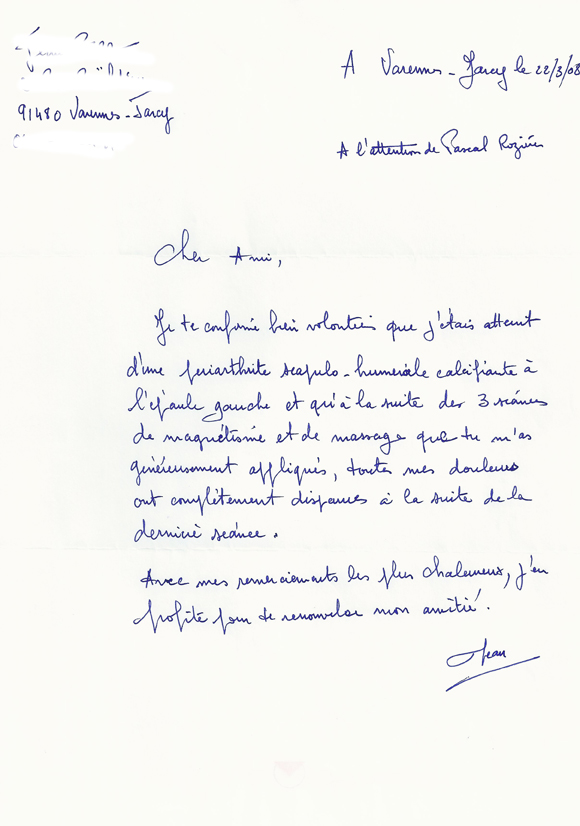 91480 Varennes-Jarcy
A Varennes-Jarcy le 22/3/08
A l'attention de Pascal Rozières
Cher Ami,
Je te confirme bien volontiers que j'étais atteint
d'une periarthrite scapulo-humerale calcifiante à
l'épaule gauche et qu'à la suite des 3 séances
de magnétisme et de massage que tu m'as
généreusement appliqués, toutes mes douleurs
ont complètement disparues à la suite de la
dernière séance.
Avec mes remerciements les plus chaleureux, j'en
profite pour te renouveler mon amitié.
Jean